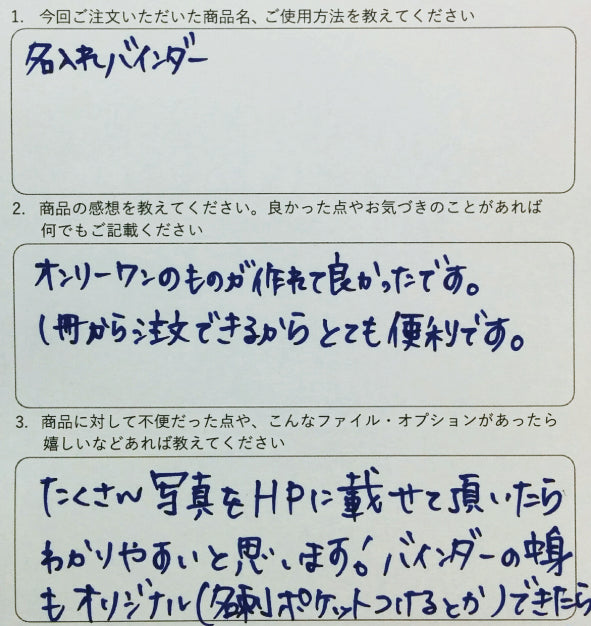 1. 今回ご注文いただいた商品名、ご使用方法を教えてください
名入れバインダー
2. 商品の感想を教えてください。良かった点やお気づきのことがあれば
何でもご記載ください
オンリーワンのものが作れて良かったです。
1冊から注文できるからとても便利です。
3. 商品に対して不便だった点や、こんなファイル・オプションがあったら
嬉しいなどあれば教えてください
たくさん写真をHPに載せて頂いたら
わかりやすいと思います!バインダーの中身
もオリジナル(名刺ポケットつけるとか)できたら